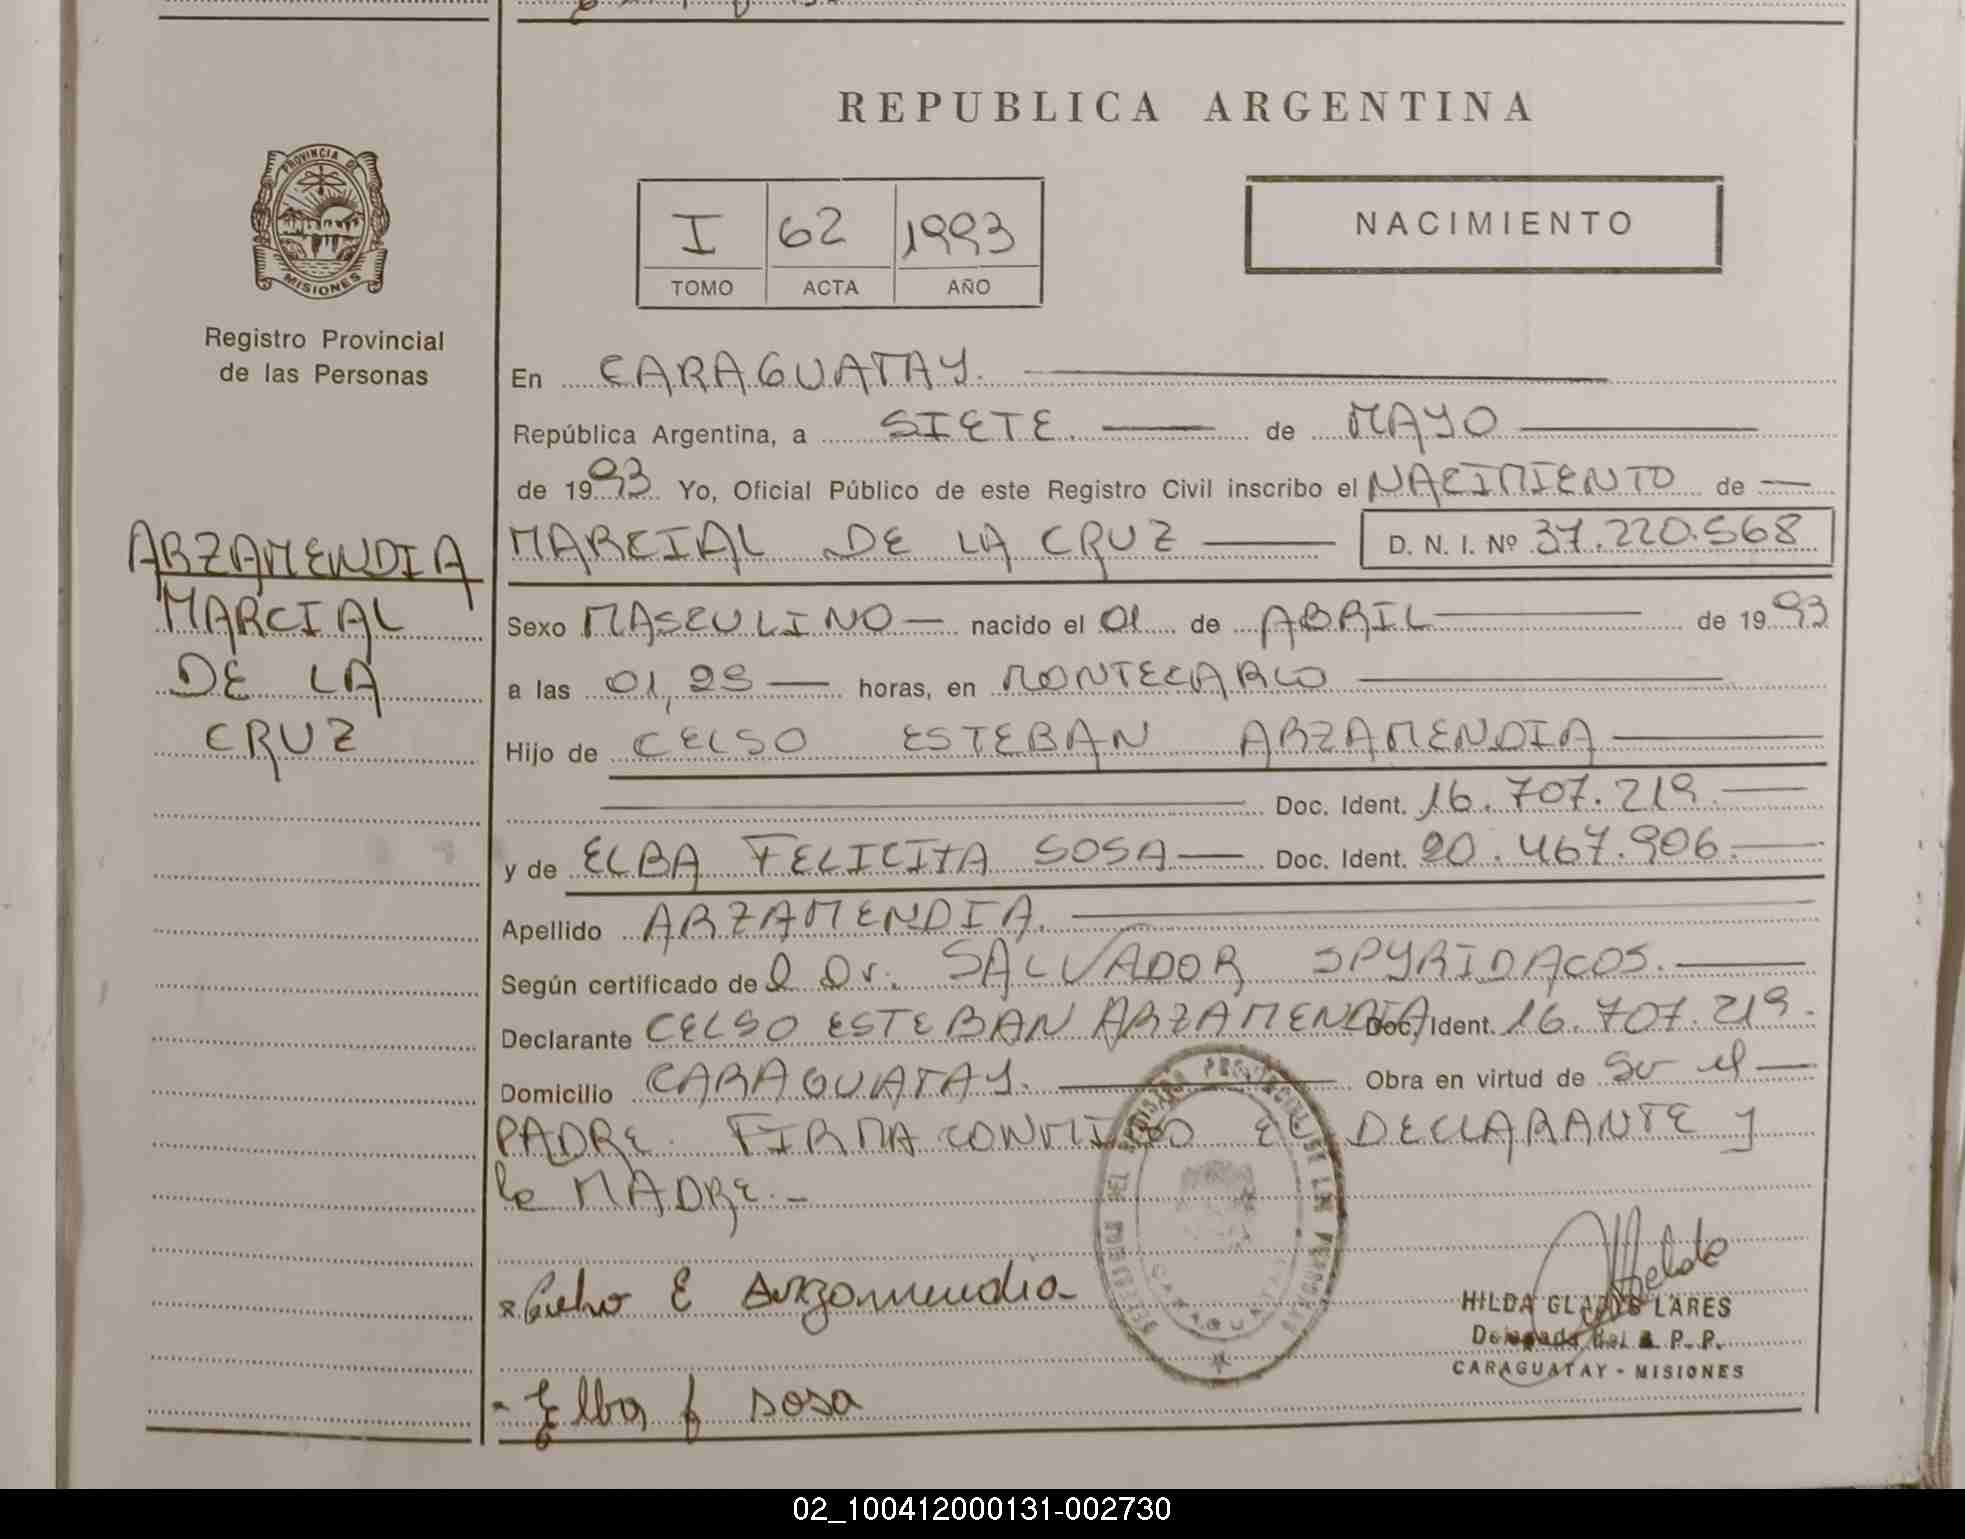 REPUBLICA ARGENTINA
PROVINCIA DE
MISIONES
Registro Provincial
de las Personas
I 62 1993
TOMO ACTA AÑO
NACIMIENTO
En CARAGUATAY.
República Argentina, a SIETE. de MAYO
de 1993 Yo, Oficial Público de este Registro Civil inscribo el NACIMIENTO de
MARCIAL DE LA CRUZ D. N. I. Nº 37.220.568
ARZAMENDIA
MARCIAL
DE LA
CRUZ
Sexo MASCULINO nacido el 01 de ABRIL de 1993
a las 01,25 horas, en MONTECARLO
Hijo de CELSO ESTEBAN ARZAMENDIA
Doc. Ident. 16.707.219.
y de ELBA FELICITA SOSA Doc. Ident. 20.467.906.
Apellido ARZAMENDIA.
Según certificado del Dr. SALVADOR SPYRIDACOS.
Declarante CELSO ESTEBAN ARZAMENDIA Doc. Ident. 16.707.219.
Domicilio CARAGUATAY. Obra en virtud de ser el
PADRE. FIRMA CONMIGO EL DECLARANTE Y
la MADRE.-
E Arzamendia
Elba f sosa
CARAGUATAY
HILDA GLADYS LARES
Delegada del R. P. P.
CARAGUATAY - MISIONES
02_100412000131-002730